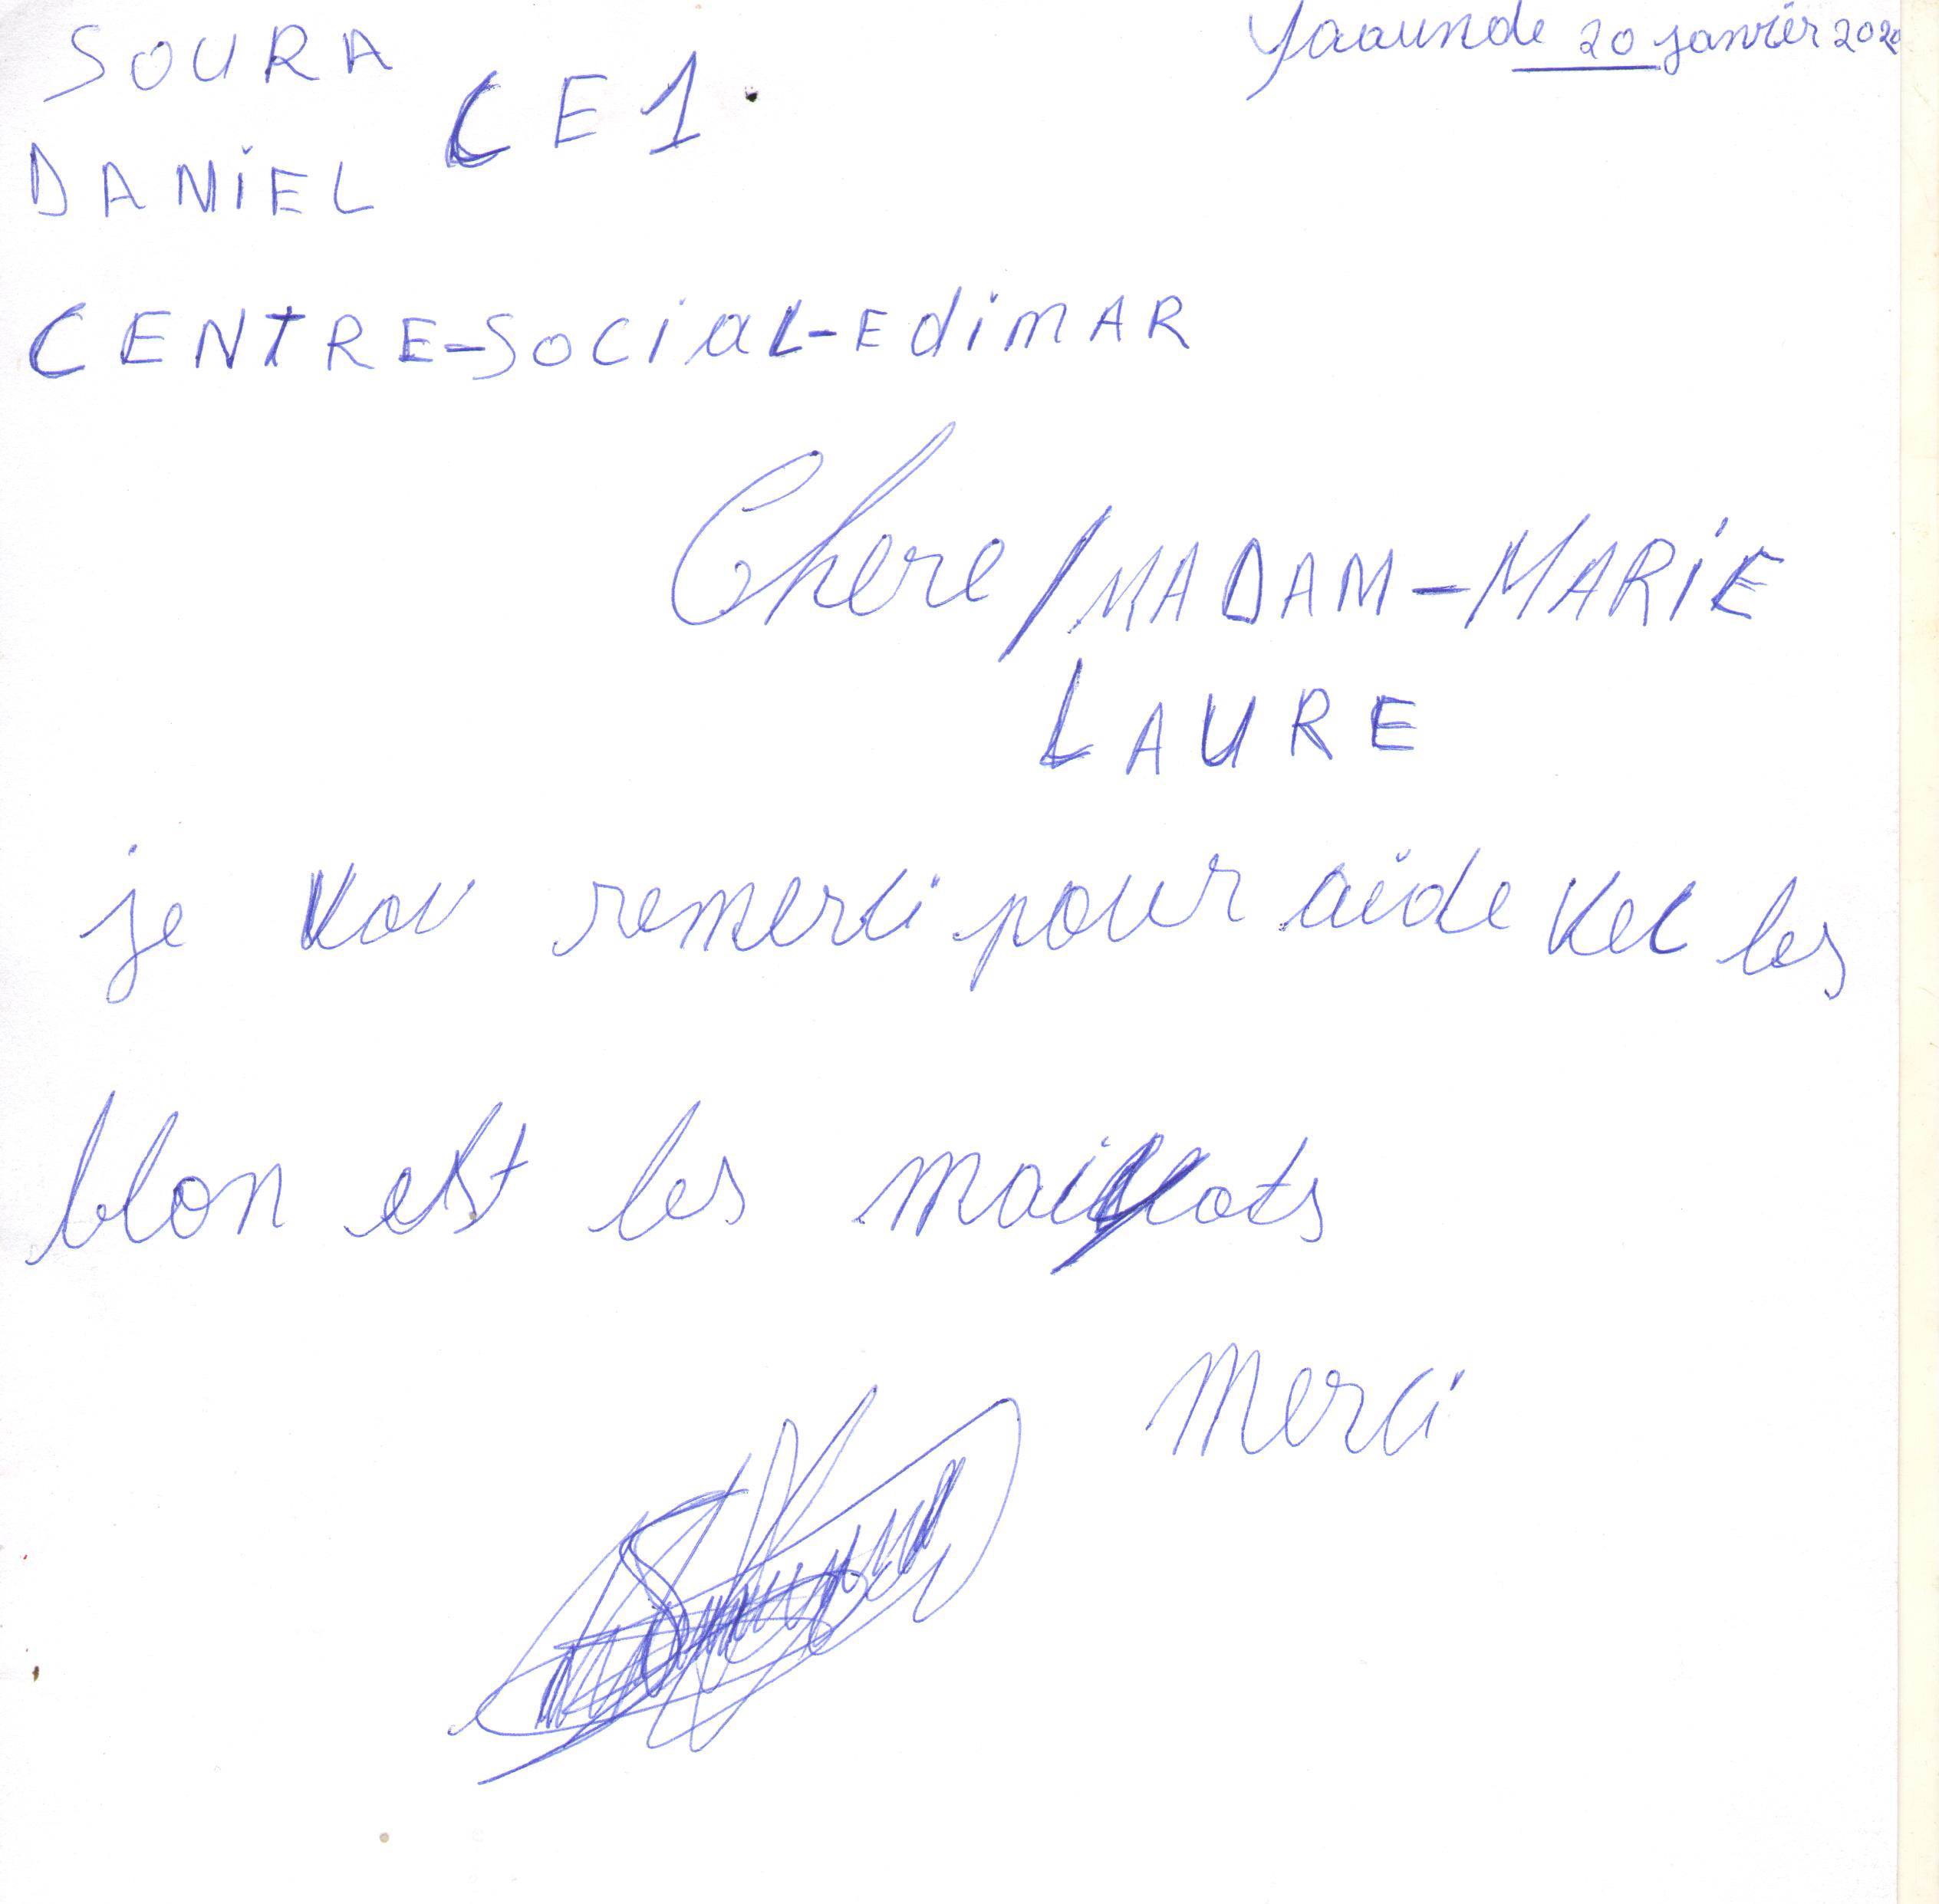 SOURA
Yaaunde 20 janvier 202
CE1.
DANiEL
CENTRE-SociaL-EdimAR
Chere/MADAM-MARiE
LAURE
je vou remerci pour aide vec les
blon est les maillots
Merci